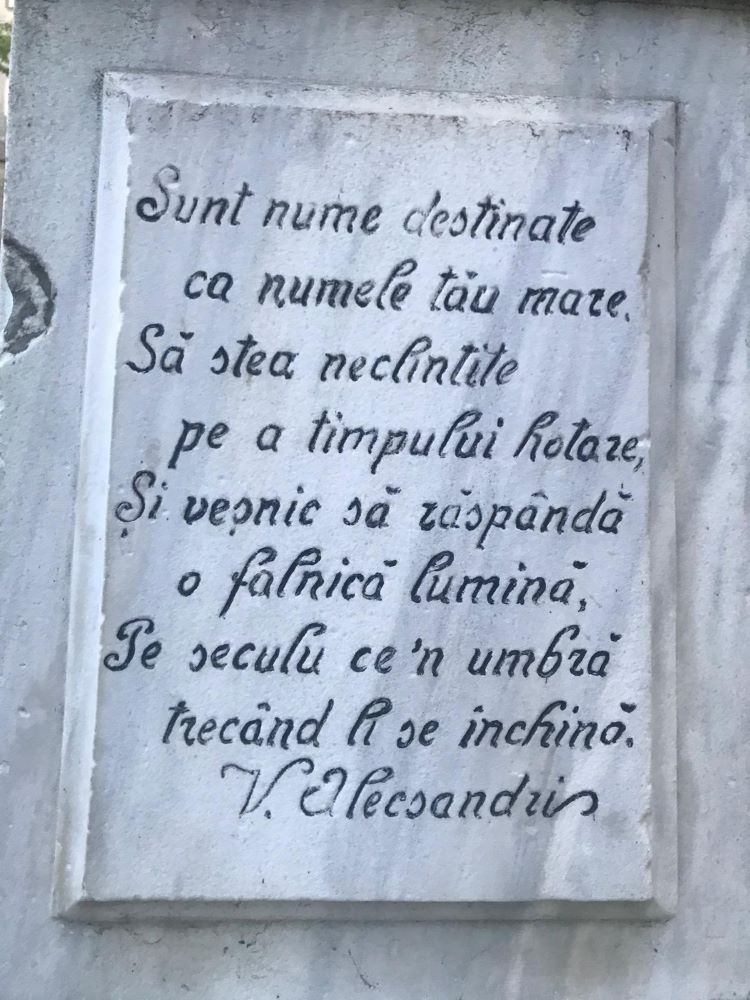 Sunt nume destinate
ca numele tău mare.
Să stea neclintite
pe a timpului hotare,
Și veșnic să răspândă
o falnică lumină,
Pe seculu ce'n umbră
trecând li se inchină.
V. Alecsandri